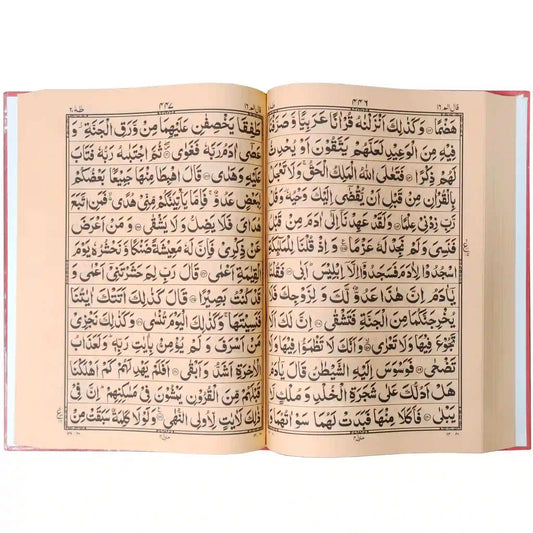 قال الم ١٦
٤٤٦
هَضْمًا وَكَذٰلِكَ اَنْزَلْنٰهُ قُرْاٰنًا عَرَبِيًّا وَّ صَرَّفْنَا
فِيْهِ مِنَ الْوَعِيْدِ لَعَلَّهُمْ يَتَّقُوْنَ اَوْ يُحْدِثُ
لَهُمْ ذِكْرًا فَتَعٰلَى اللّٰهُ الْمَلِكُ الْحَقُّ وَلَا تَعْجَلْ
بِالْقُرْاٰنِ مِنْ قَبْلِ اَنْ يُّقْضٰٓى اِلَيْكَ وَحْيُهٗ وَقُلْ
رَّبِّ زِدْنِيْ عِلْمًا وَلَقَدْ عَهِدْنَآ اِلٰٓى اٰدَمَ مِنْ قَبْلُ
فَنَسِيَ وَلَمْ نَجِدْ لَهٗ عَزْمًا وَ اِذْ قُلْنَا لِلْمَلٰٓئِكَةِ
اسْجُدُوْا لِاٰدَمَ فَسَجَدُوْٓا اِلَّآ اِبْلِيْسَ اَبٰى فَقُلْنَا
يٰٓاٰدَمُ اِنَّ هٰذَا عَدُوٌّ لَّكَ وَ لِزَوْجِكَ فَلَا
يُخْرِجَنَّكُمَا مِنَ الْجَنَّةِ فَتَشْقٰى اِنَّ لَكَ اَلَّا
تَجُوْعَ فِيْهَا وَلَا تَعْرٰى وَاَنَّكَ لَا تَظْمَؤُا فِيْهَا وَلَا
تَضْحٰى فَوَسْوَسَ اِلَيْهِ الشَّيْطٰنُ قَالَ يٰٓاٰدَمُ
هَلْ اَدُلُّكَ عَلٰى شَجَرَةِ الْخُلْدِ وَ مُلْكٍ لَّا
يَبْلٰى فَاَكَلَا مِنْهَا فَبَدَتْ لَهُمَا سَوْاٰتُهُمَا وَ
قال الم ١٦
٤٤٧
طٰهٰ ٢٠
طَفِقَا يَخْصِفٰنِ عَلَيْهِمَا مِنْ وَّرَقِ الْجَنَّةِ وَ
عَصٰٓى اٰدَمُ رَبَّهٗ فَغَوٰى ثُمَّ اجْتَبٰهُ رَبُّهٗ فَتَابَ
عَلَيْهِ وَهَدٰى قَالَ اهْبِطَا مِنْهَا جَمِيْعًۢا بَعْضُكُمْ
لِبَعْضٍ عَدُوٌّ فَاِمَّا يَاْتِيَنَّكُمْ مِّنِّيْ هُدًى فَمَنِ اتَّبَعَ
هُدَايَ فَلَا يَضِلُّ وَلَا يَشْقٰى وَ مَنْ اَعْرَضَ
عَنْ ذِكْرِيْ فَاِنَّ لَهٗ مَعِيْشَةً ضَنْكًا وَّ نَحْشُرُهٗ يَوْمَ
الْقِيٰمَةِ اَعْمٰى قَالَ رَبِّ لِمَ حَشَرْتَنِيْٓ اَعْمٰى وَ
قَدْ كُنْتُ بَصِيْرًا قَالَ كَذٰلِكَ اَتَتْكَ اٰيٰتُنَا
فَنَسِيْتَهَا وَكَذٰلِكَ الْيَوْمَ تُنْسٰى وَكَذٰلِكَ نَجْزِيْ
مَنْ اَسْرَفَ وَ لَمْ يُؤْمِنْۢ بِاٰيٰتِ رَبِّهٖ وَلَعَذَابُ
الْاٰخِرَةِ اَشَدُّ وَاَبْقٰى اَفَلَمْ يَهْدِ لَهُمْ كَمْ اَهْلَكْنَا
قَبْلَهُمْ مِّنَ الْقُرُوْنِ يَمْشُوْنَ فِيْ مَسٰكِنِهِمْ اِنَّ فِيْ
ذٰلِكَ لَاٰيٰتٍ لِّاُولِي النُّهٰى وَلَوْلَا كَلِمَةٌ سَبَقَتْ مِنْ